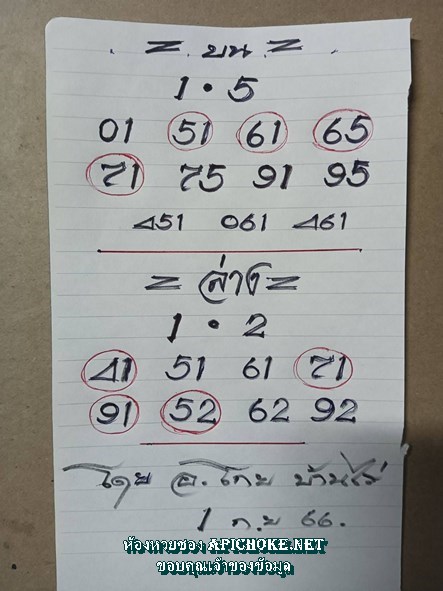 = บน =
1 • 5
01 51 61 65
71 75 91 95
451 061 461
= ล่าง =
1 • 2
41 51 61 71
91 52 62 92
โดย อ.โทย บ้านไร่
1 ก.ย 66.
ห้องหวยซอง APICHOKE.NET
ขอบคุณเจ้าของข้อมูล